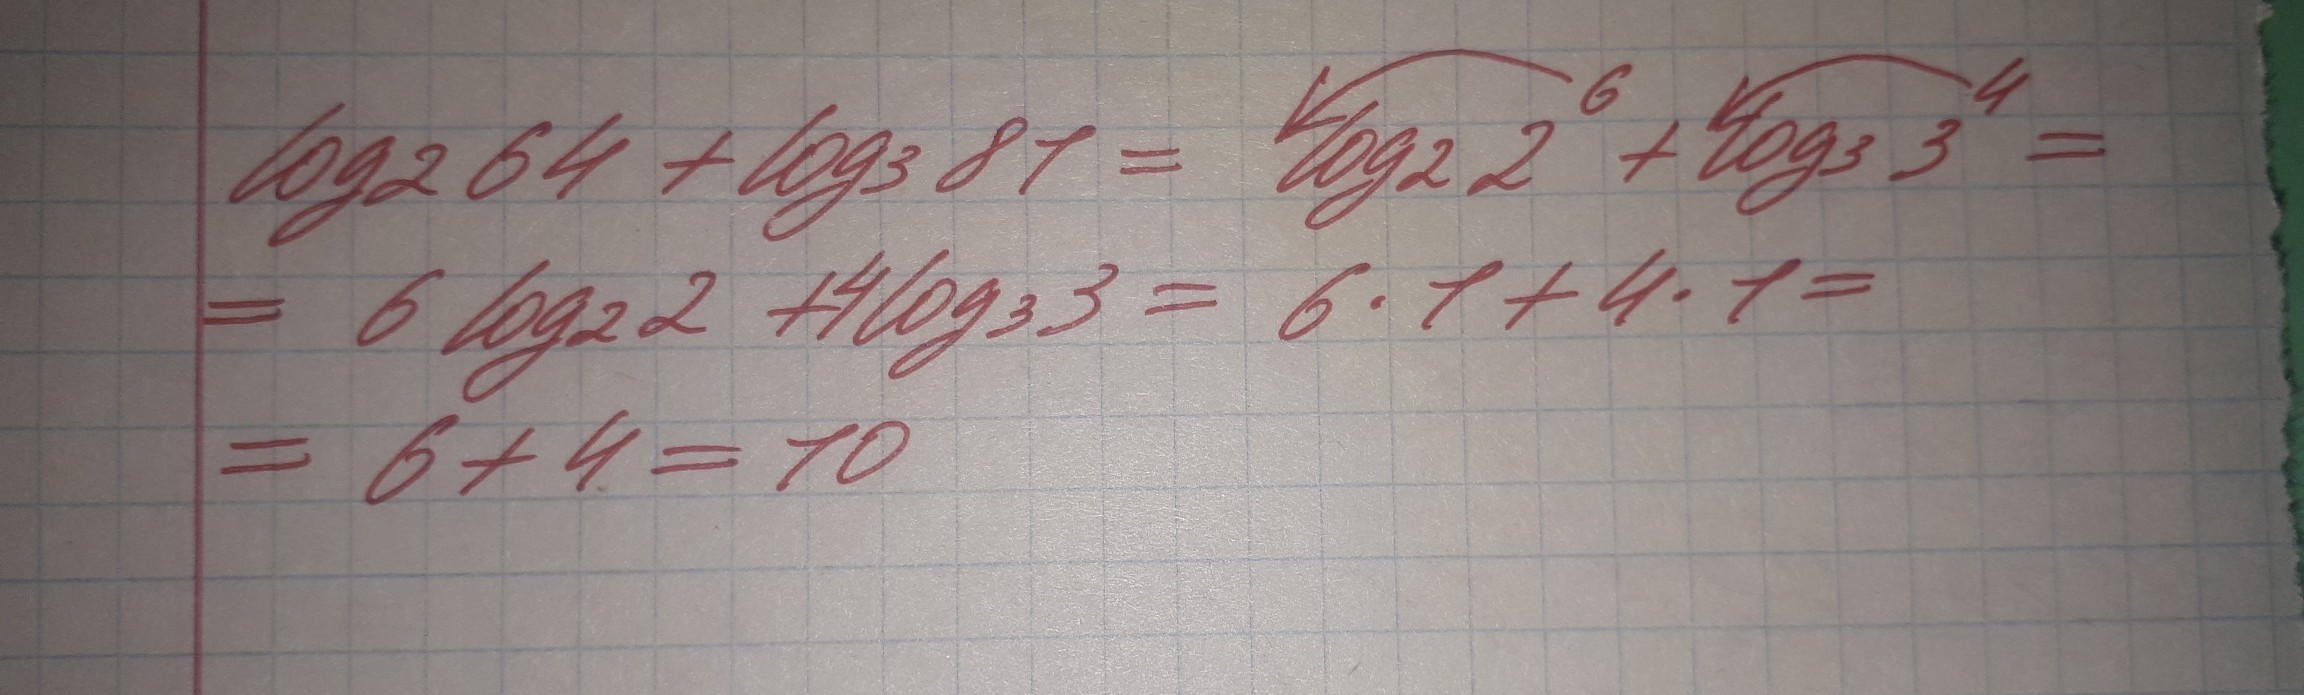 log₂ 64 + log₃ 81 = log₂ 2⁶ + log₃ 3⁴ =
= 6 log₂ 2 + 4 log₃ 3 = 6 · 1 + 4 · 1 =
= 6 + 4 = 10